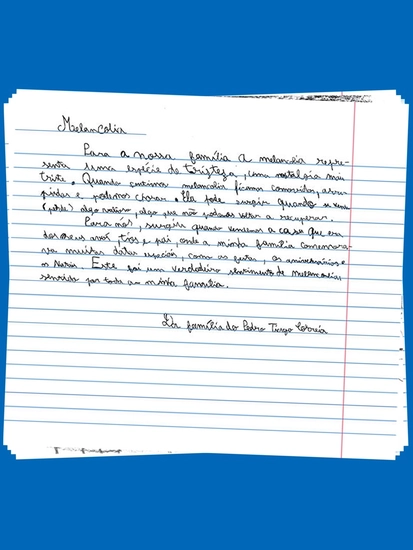 Melancolia
Para a nossa família a melancolia repre-
senta uma espécie de tristeza, uma nostalgia mais
triste. Quando sentimos melancolia ficamos comovidos,
e podemos chorar. Ela pode surgir quando se
(perde) algo, algo que não podemos voltar a recuperar.
Para nós, surgiu quando vendemos a casa que era
dos meus avós, tios e pai, onde a minha família comemora-
va muitas datas especiais, como as festas, os aniversários e
o Natal. Este foi um verdadeiro sentimento de melancolia
sentido por toda a minha família.
Da família do Pedro Tiago Correia